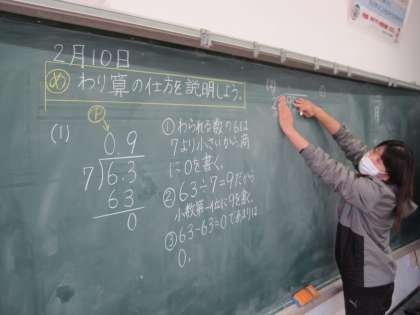 2月10日
め わり算の仕方を説明しよう。
(1)
0.9
7)6.3
63
0
①わられる数の6は
7より小さいから、商
に0を書く。
②63÷7=9だから
小数第一位に9を書く。
③63-63=0であまりは
0。
(2)